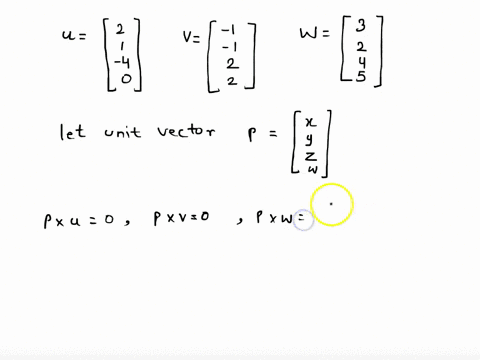 u = [2 1 -4 0] V = [-1 -1 2 2] W = [3 2 4 5]
let unit vector P = [x y z w]
P x u = 0 , P x v = 0 , P x w =